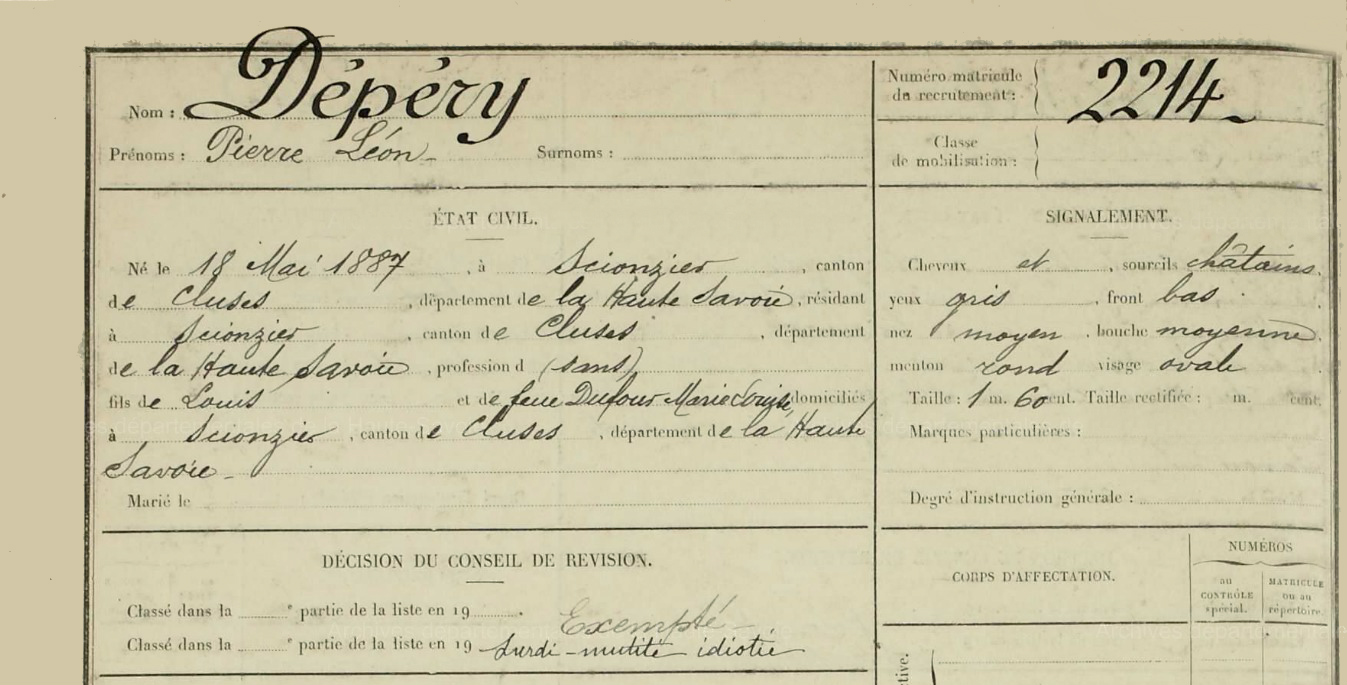 Nom : Dépéry
Numéro matricule du recrutement : 2214
Prénoms : Pierre Léon Surnoms :
Classe de mobilisation :
ÉTAT CIVIL.
Né le 18 Mai 1887, à Scionzier, canton
de Cluses, département de la Haute Savoie, résidant
à Scionzier, canton de Cluses, département
de la Haute Savoie, profession d (sans)
fils de Louis et de feue Dufour Marie Louise, domiciliés
à Scionzier, canton de Cluses, département de la Haute
Savoie -
Marié le
SIGNALEMENT.
Cheveux et, sourcils châtains.
yeux gris, front bas.
nez moyen. bouche moyenne.
menton rond visage ovale
Taille : 1 m. 60 cent. Taille rectifiée : m. cent.
Marques particulières :
Degré d'instruction générale :
DÉCISION DU CONSEIL DE REVISION.
Classé dans la e partie de la liste en 19 .
Exempté -
Classé dans la e partie de la liste en 19 Surdi-mutité idiotie
CORPS D'AFFECTATION.
NUMÉROS
au CONTRÔLE spécial.
MATRICULE ou au répertoire.